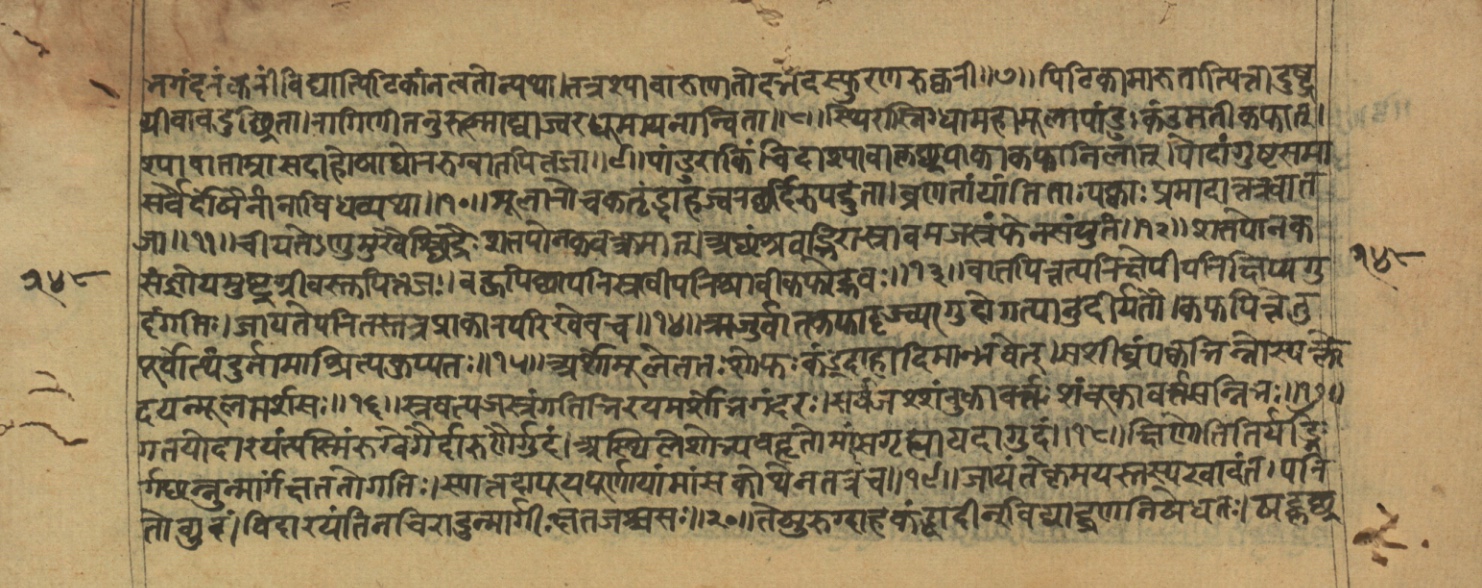 भगंदरं करीं विद्यात्पिटिकां न त्वतोन्यथा। तत्र श्यावारुणतोदभेदस्फुरणरुक्करी॥७॥ पिटिकामारुतात्पित्तादुष्ट्र
ग्रीवावदुच्छ्रिता। रागिणीतनुरूष्माढ्याज्वरधूमायनान्विता॥८॥ स्थिरास्निग्धामहामूलापांडुः कंडुमतीकफात्।
श्यावाताम्रासदाहोषाघोररुग्वातपित्तजा॥९॥ पांडुराकिंचिदाश्यावाकृच्छ्रपाकाकफानिलात्। पादांगुष्टसमा
सर्वैर्दोषैर्नानाविधव्यथा॥१०॥ शूलारोचकतृड्दाहज्वरछर्दिरुपद्रुता। व्रणतांयांतिताः पक्वाः प्रमादात्तत्रवात
जा॥११॥ चीयतेऽणुमुखैश्छिद्रैः शतपोनकवत्क्रमात्। अछंस्रवद्भिरास्रावमजस्रंफेनसंयुतं॥१२॥ शतपोनक
संज्ञोयमुष्ट्रग्रीवस्तुपित्तजः। बहुपिछापरिस्रावीपरिस्रावीकफोद्भवः॥१३॥ वातपित्तात्परिक्षेपीपरिक्षिप्यगु
दंगतिः। जायतेपरितस्तत्रप्राकारपरिखेवच॥१४॥ ऋजुर्वातकफादृज्व्यागुदोगत्यानुदीर्यते। कफपित्तेतु
पूर्वोत्थंदुर्नामाश्रित्यकुप्यतः॥१५॥ अर्शोमूलेततः शोफः कंडूदाहादिमान्भवेत्। सशीघ्रंपक्वभिन्नोस्यक्ले
दयन्मूलमर्शसः॥१६॥ स्रवत्यजस्रंगतिभिरयमर्शोभगंदरः। सर्वजःशंबुकावर्त्तः शंबूकावर्त्तसन्निभः॥१७॥
गतयोदारयंत्यस्मिंरुग्वेगैर्दारुणैर्गुदं। अस्थिलेशोभ्यवहृतोमांसगृद्ध्यायदागुदं॥१८॥ क्षिणोतितिर्यङ्नि
र्गछन्नुन्मार्गंक्षततोगतिः। स्यात्तदापूयपूर्णायांमांसकोथेनतत्रच॥१९॥ जायंतेकृमयस्तस्यखादंतः परि
तोगुदं। विदारयंतिनचिरादुन्मार्गीक्षतजश्चसः॥२०॥ तेषुरुग्दाहकंड्वादीन्विद्याद्व्रणनिषेधतः। षट्कृच्छ्र
१४८
१४८